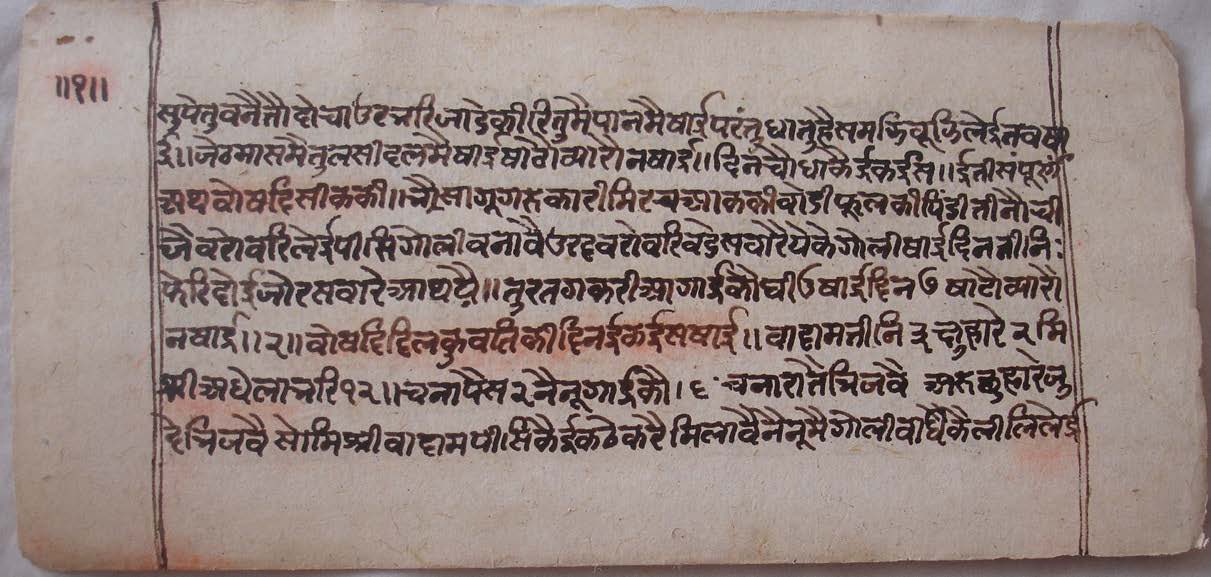 ॥१॥
सुपेतुवनैतौ दोचाउर भरि जाडेकी रितुमै पानमै षाई परंतु धातुहै समझि वूझि लेई तव षा
ई॥ जेठमासमै तुलसीदलमै षाई षाटोव्यारो न षाई॥ दिन चौधाकै ईकईस॥ ईती संपूरणं
अथ वोषदि सीककी॥ चौसागूगरुकारी मिरच आककी वोडी फूलकी पिंडी तीनौ ची
जै वरोवरि लेई पीसि गोली वनावै उरदवरोवरि वडे सवारे येके गोली षाई दिन तीनि
फेरि दोई जोर सवारे आथयै॥ तुरत गकरी आगाईकौ घी ७ षाई दिन ७ षाटोव्यारो
न षाई॥२॥ वोषदि दिलकुवतिकी दिन ईकईस षाई॥ वादाम तीनि ३ छुहारे २ मि
श्री अधेला भरि १२॥ चना पैस २ नैनू गाईकौ। ६ चना रातै भिजवै अरु छुहारे जु
दे भिजवै सो मिश्री वादाम पीसिकै ईकठे करै मिलावै नैनूमै गोली वाधिकै लीलि लेई